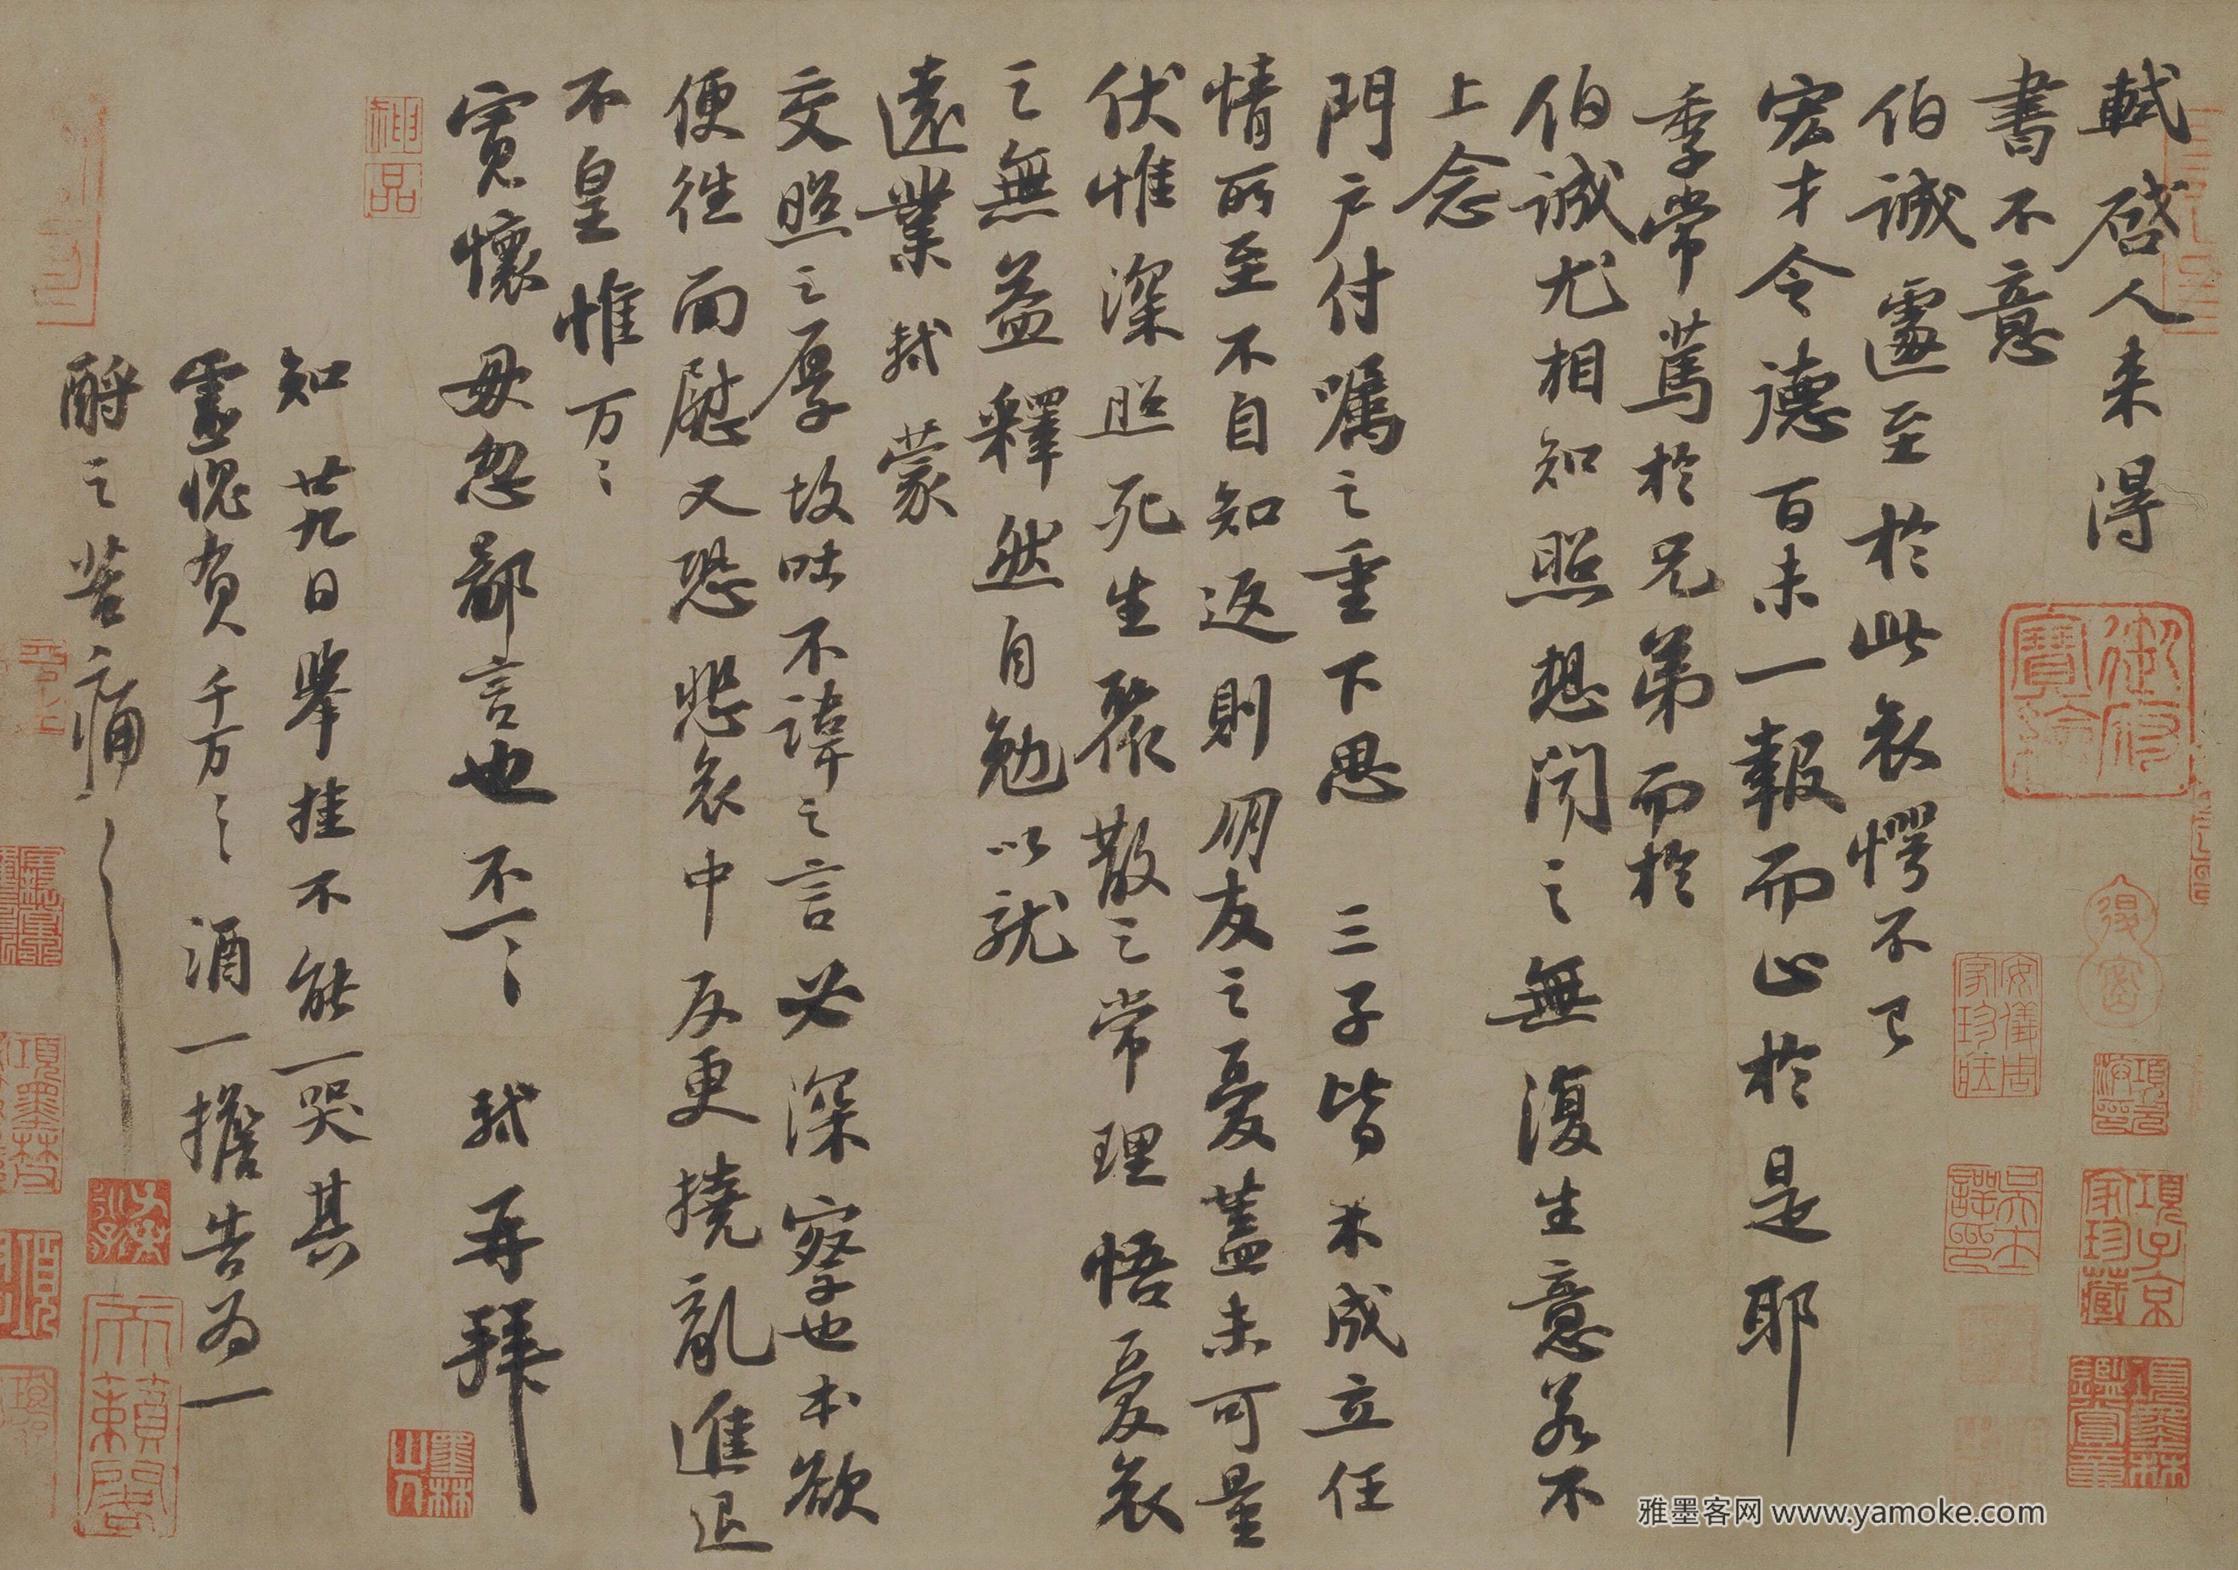 軾啓人来得
書不意
伯誠遽至於此哀愕不已
宏才令德百未一報而止於是耶
季常篤於兄弟而於
伯誠尤相知照想聞之無復生意若不
上念
門户付囑之重下思三子皆未成立任
情所至不自知返則朋友之憂蓋未可量
伏惟深照死生聚散之常理悟憂哀
之無益釋然自勉以就
遠業軾蒙
交照之厚故吐不諱之言必深察也本欲
便往面慰又恐悲哀中反更撓亂進退
不皇惟万〻
寬懷毋忽鄙言也不一〻軾再拜
知廿九日舉挂不能一哭其
靈愧負千万〻酒一擔告為一
酹之苦痛〻
御府寶繪
安儀周家珍藏
項子京家珍藏
項墨林鑑賞章
神品
墨林山人
天籟閣
雅墨客网 www.yamoke.com